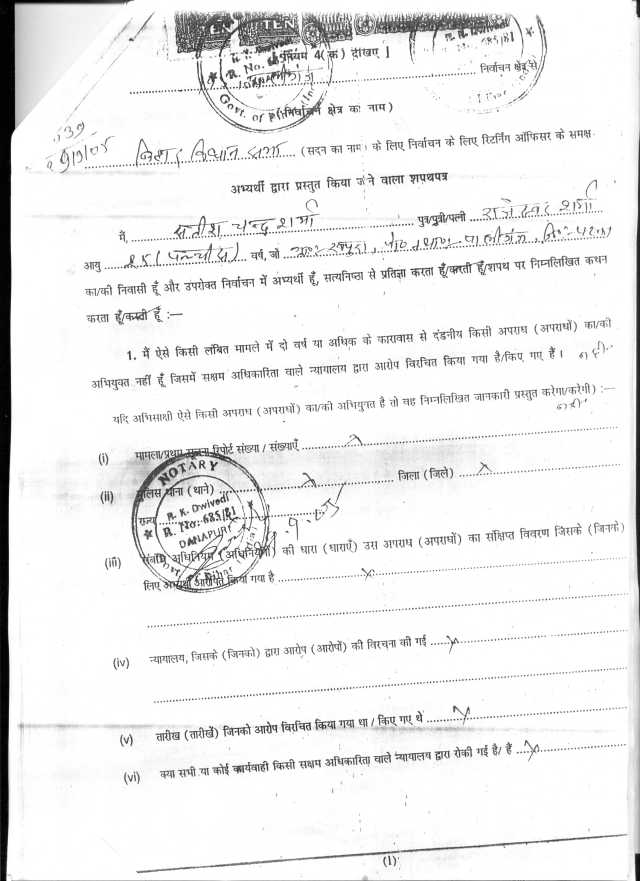 TEN
TEN
R. K. Dwivedi
R. No. 685/81
नियम 4(क) देखिए ]
Govt. of
निर्वाचन क्षेत्र से
(निर्वाचन क्षेत्र का नाम)
बिहार विधान सभा (सदन का नाम) के लिए निर्वाचन के लिए रिटर्निंग ऑफिसर के समक्ष
अभ्यर्थी द्वारा प्रस्तुत किया जाने वाला शपथपत्र
मैं, सतीश चन्द्र शर्मा पुत्र/पुत्री/पत्नी राजेश्वर शर्मा
आयु 25 (पच्चीस) वर्ष, जो
का/की निवासी हूँ और उपरोक्त निर्वाचन में अभ्यर्थी हूँ, सत्यनिष्ठा से प्रतिज्ञा करता हूँ/करती हूँ/शपथ पर निम्नलिखित कथन
करता हूँ/करती हूँ :—
1. मैं ऐसे किसी लंबित मामले में दो वर्ष या अधिक के कारावास से दंडनीय किसी अपराध (अपराधों) का/की
अभियुक्त नहीं हूँ जिसमें सक्षम अधिकारिता वाले न्यायालय द्वारा आरोप विरचित किया गया है/किए गए हैं ।
यदि अभिसाक्षी ऐसे किसी अपराध (अपराधों) का/की अभियुक्त है तो वह निम्नलिखित जानकारी प्रस्तुत करेगा/करेगी) :—
(i) मामला/प्रथम सूचना रिपोर्ट संख्या / संख्याएँ
(ii) पुलिस थाना (थाने) जिला (जिले)
राज्य
NOTARY
R. K. Dwivedi
R. No. 685/81
DANAPUR
(iii) संबंधित अधिनियम (अधिनियमों) की धारा (धाराएँ) उस अपराध (अपराधों) का संक्षिप्त विवरण जिसके (जिनके)
लिए अभ्यर्थी आरोपित किया गया है
(iv) न्यायालय, जिसके (जिनको) द्वारा आरोप (आरोपों) की विरचना की गई
(v) तारीख (तारीखें) जिनको आरोप विरचित किया गया था / किए गए थे
(vi) क्या सभी या कोई कार्यवाही किसी सक्षम अधिकारिता वाले न्यायालय द्वारा रोकी गई है/ हैं
(1)